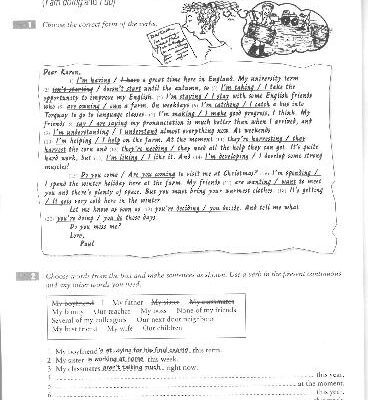 (I am doing and I do)
1 Choose the correct form of the verbs.
Dear Karen,
(1) I'm having / I have a great time here in England. My university term
(2) isn't starting / doesn't start until the autumn, so (3) I'm taking / I take the
opportunity to improve my English. (4) I'm staying / I stay with some English friends
who (5) are owning / own a farm. On weekdays (6) I'm catching / I catch a bus into
Torquay to go to language classes. (7) I'm making / I make good progress, I think. My
friends (8) say / are saying my pronunciation is much better than when I arrived, and
(9) I'm understanding / I understand almost everything now. At weekends
(10) I'm helping / I help on the farm. At the moment (11) they're harvesting / they
harvest the corn and (12) they're needing / they need all the help they can get. It's quite
hard work, but (13) I'm liking / I like it. And (14) I'm developing / I develop some strong
muscles!
(15) Do you come / Are you coming to visit me at Christmas? (16) I'm spending /
I spend the winter holiday here at the farm. My friends (17) are wanting / want to meet
you and there's plenty of space. But you must bring your warmest clothes. (18) It's getting
/ It gets very cold here in the winter.
Let me know as soon as (19) you're deciding / you decide. And tell me what
(20) you're doing / you do these days.
Do you miss me?
Love,
Paul
2 Choose words from the box and make sentences as shown. Use a verb in the present continuous
and any other words you need.
My boyfriend I My father My sister My classmates
My family Our teacher My boss None of my friends
Several of my colleagues Our next door neighbour
My best friend My wife Our children
1 My boyfriend's studying for his final exams this term.
2 My sister is working at home this week.
3 My classmates aren't talking much right now.
4 this year.
5 at the moment.
6 this year.